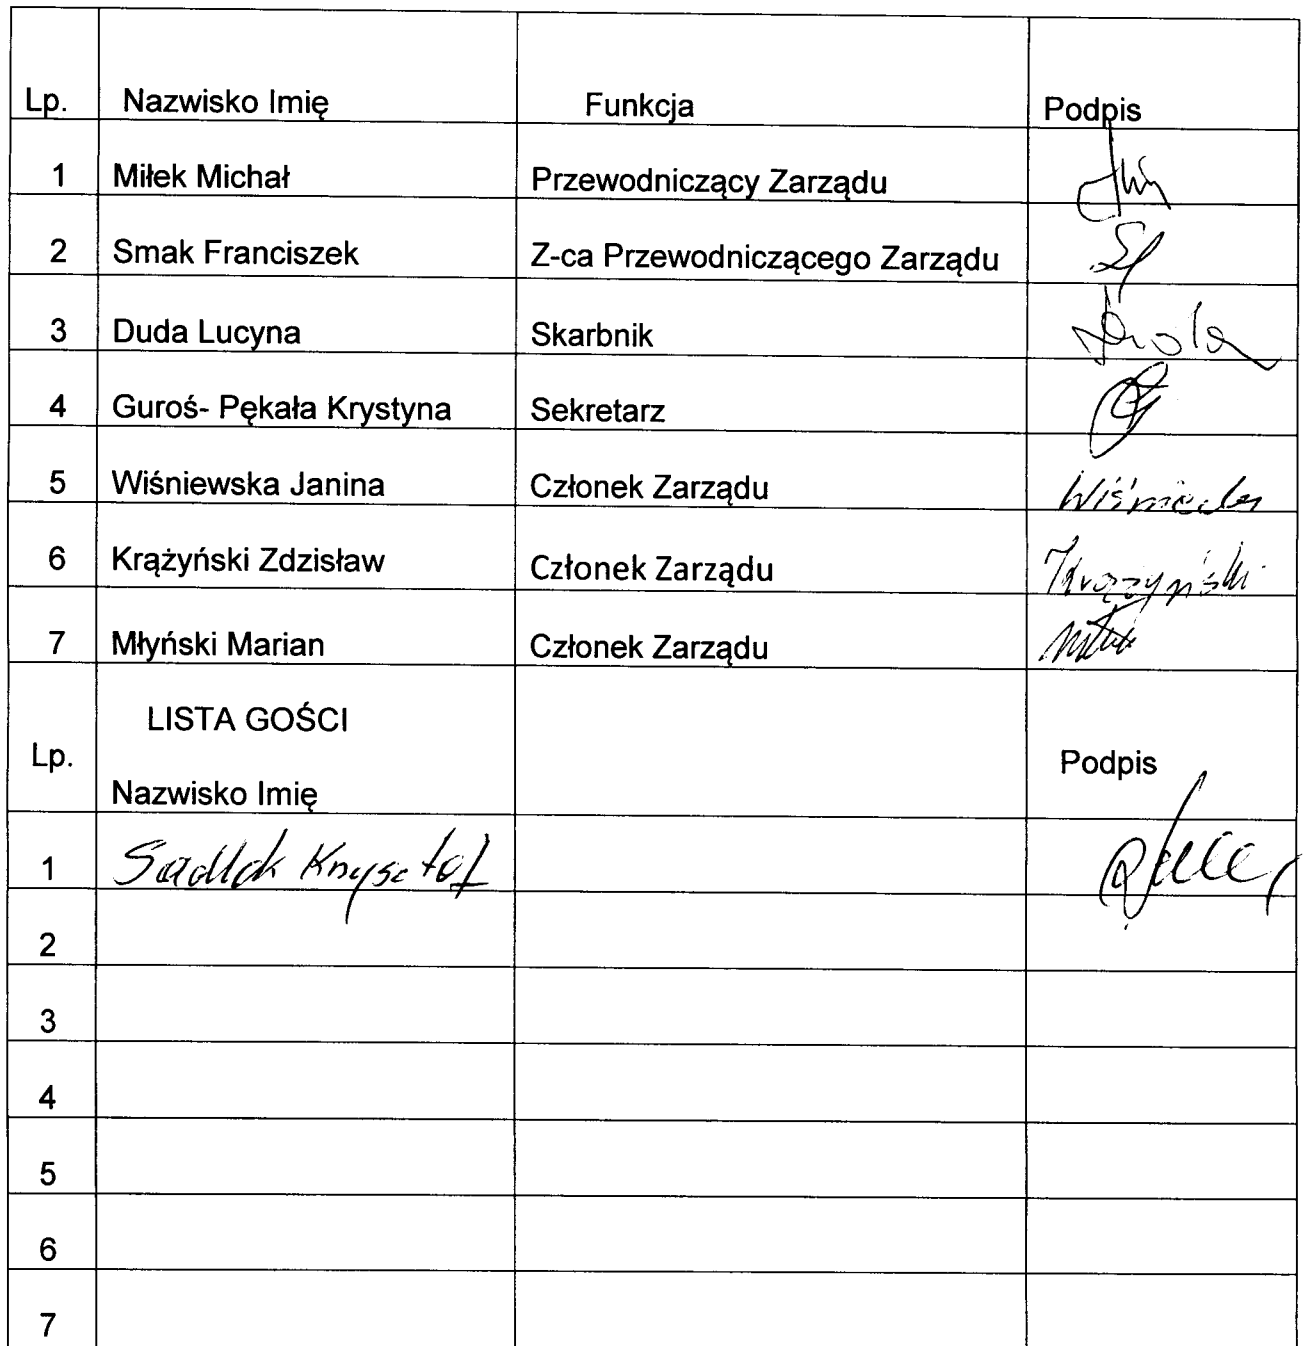 Lp. Nazwisko Imię Funkcja Podpis
1 Miłek Michał Przewodniczący Zarządu
2 Smak Franciszek Z-ca Przewodniczącego Zarządu
3 Duda Lucyna Skarbnik
4 Guroś- Pękała Krystyna Sekretarz
5 Wiśniewska Janina Członek Zarządu
6 Krążyński Zdzisław Członek Zarządu Krążyński
7 Młyński Marian Członek Zarządu
LISTA GOŚCI
Lp. Podpis
Nazwisko Imię
1 Sadlok Krzysztof
2
3
4
5
6
7